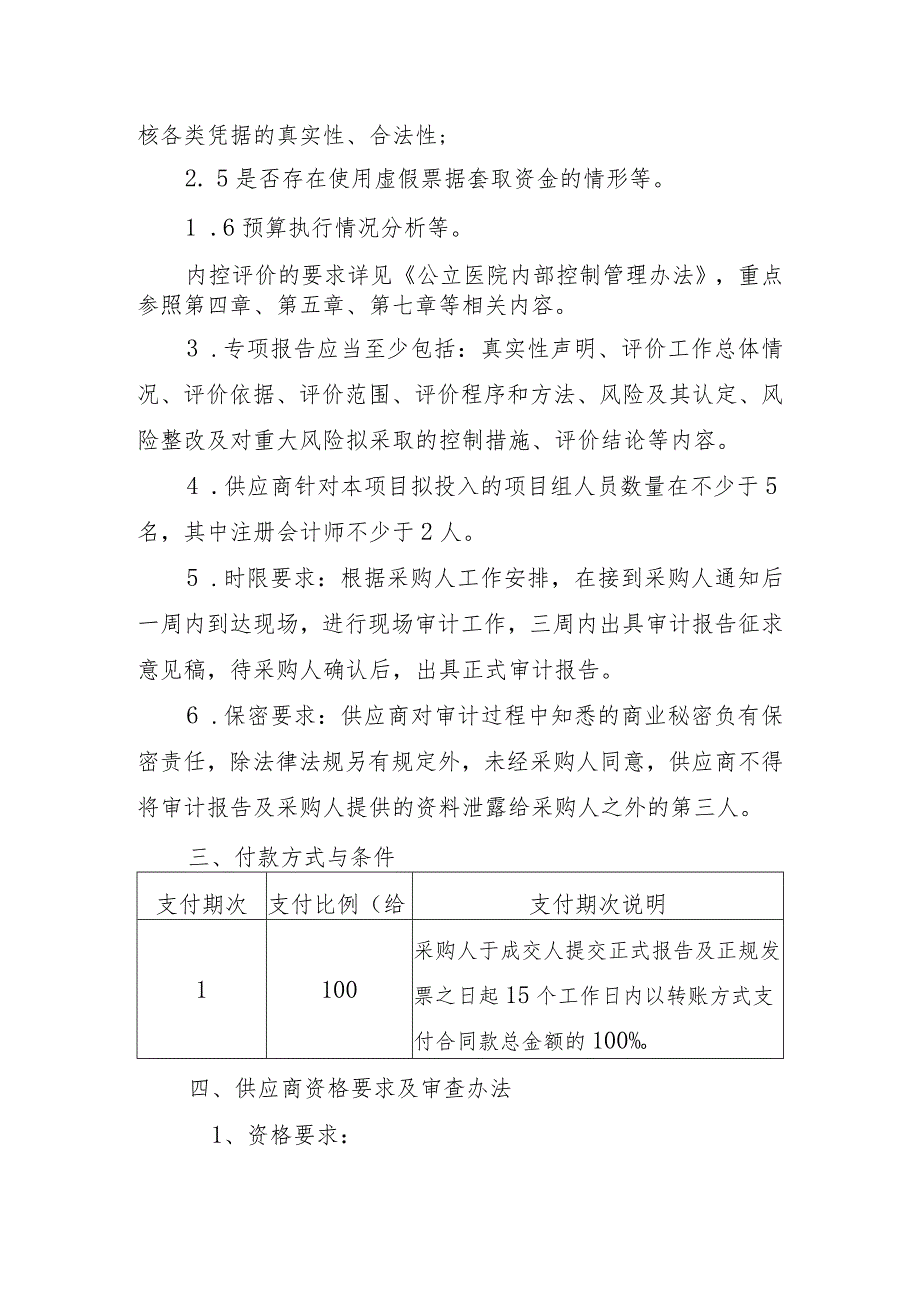 核各类凭据的真实性、合法性;
2. 5是否存在使用虚假票据套取资金的情形等。
1 .6预算执行情况分析等。
内控评价的要求详见《公立医院内部控制管理办法》,重点
参照第四章、第五章、第七章等相关内容。
3 .专项报告应当至少包括:真实性声明、评价工作总体情
况、评价依据、评价范围、评价程序和方法、风险及其认定、风
险整改及对重大风险拟采取的控制措施、评价结论等内容。
4 .供应商针对本项目拟投入的项目组人员数量在不少于5
名,其中注册会计师不少于2人。
5 .时限要求:根据采购人工作安排,在接到采购人通知后
一周内到达现场,进行现场审计工作,三周内出具审计报告征求
意见稿,待采购人确认后,出具正式审计报告。
6 .保密要求:供应商对审计过程中知悉的商业秘密负有保
密责任,除法律法规另有规定外,未经采购人同意,供应商不得
将审计报告及采购人提供的资料泄露给采购人之外的第三人。
三、付款方式与条件
支付期次 支付比例(给 支付期次说明
1 100 采购人于成交人提交正式报告及正规发
票之日起15个工作日内以转账方式支
付合同款总金额的100‰
四、供应商资格要求及审查办法
1、资格要求: